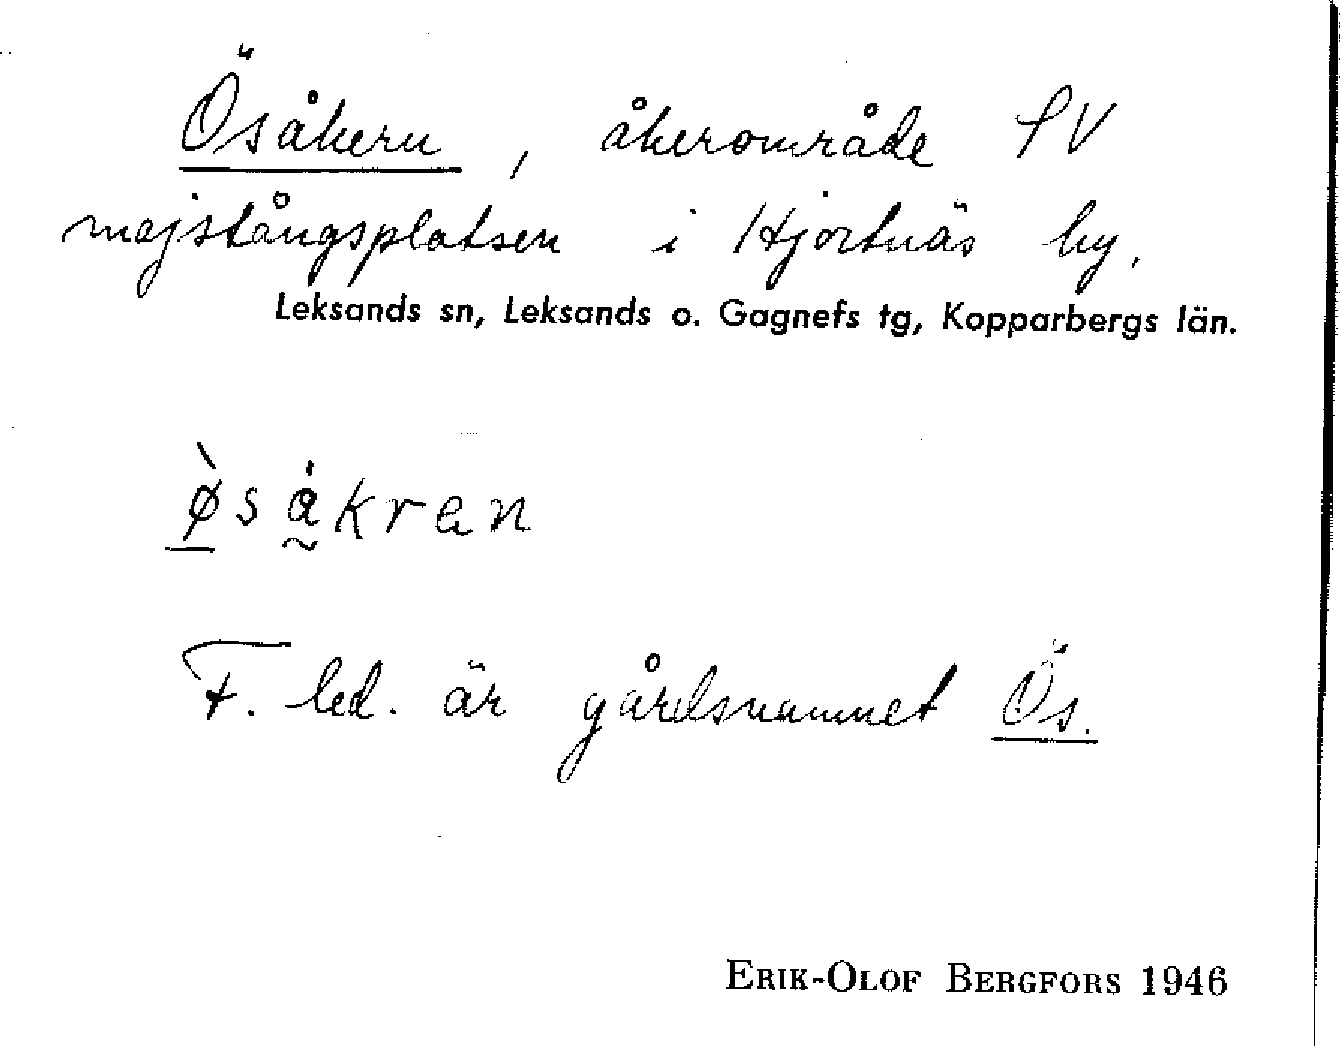 Ösåkern, åkerområde SV
majstångsplatsen i Hjortnäs by.
Leksands sn, Leksands o. Gagnefs tg, Kopparbergs län.
ø̀såkran
F. led. är gårdsnamnet Ös.
ERIK-OLOF BERGFORS 1946